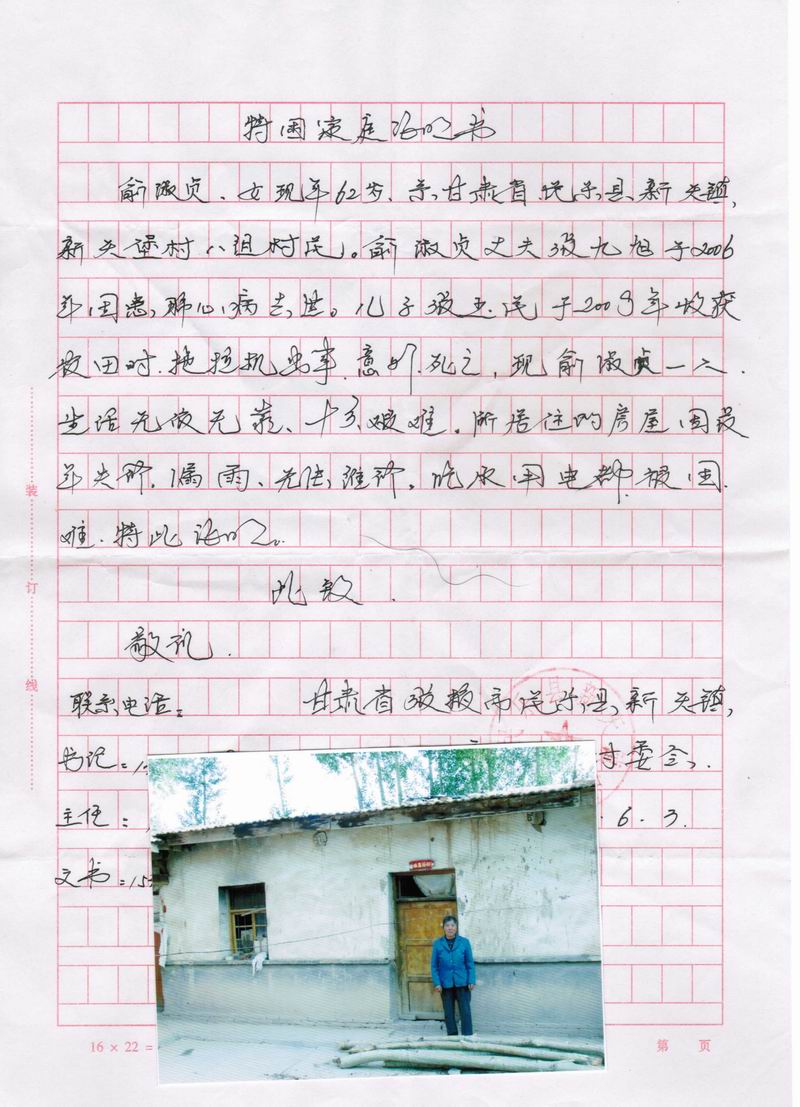 特困家庭证明书
俞淑贞、女现年62岁、系甘肃省民乐县新天镇,
新天堡村八组村民。俞淑贞丈夫张九旭于2006
年因患肺心病去世。儿子张玉民于2009年收获
农田时.拖拉机出事.意外死亡,现俞淑贞一人.
生活无依无靠、十分艰难。所居住的房屋因最
年失修.漏雨、无法维修。吃水用电都.很困.
难.特此证明。
此致.
敬礼.
联系电话: 甘肃省张掖市民乐县新天镇,
书记: 村委会.
主任: 6.3.
文书:15
装
订
线
16 × 22 =
第 页